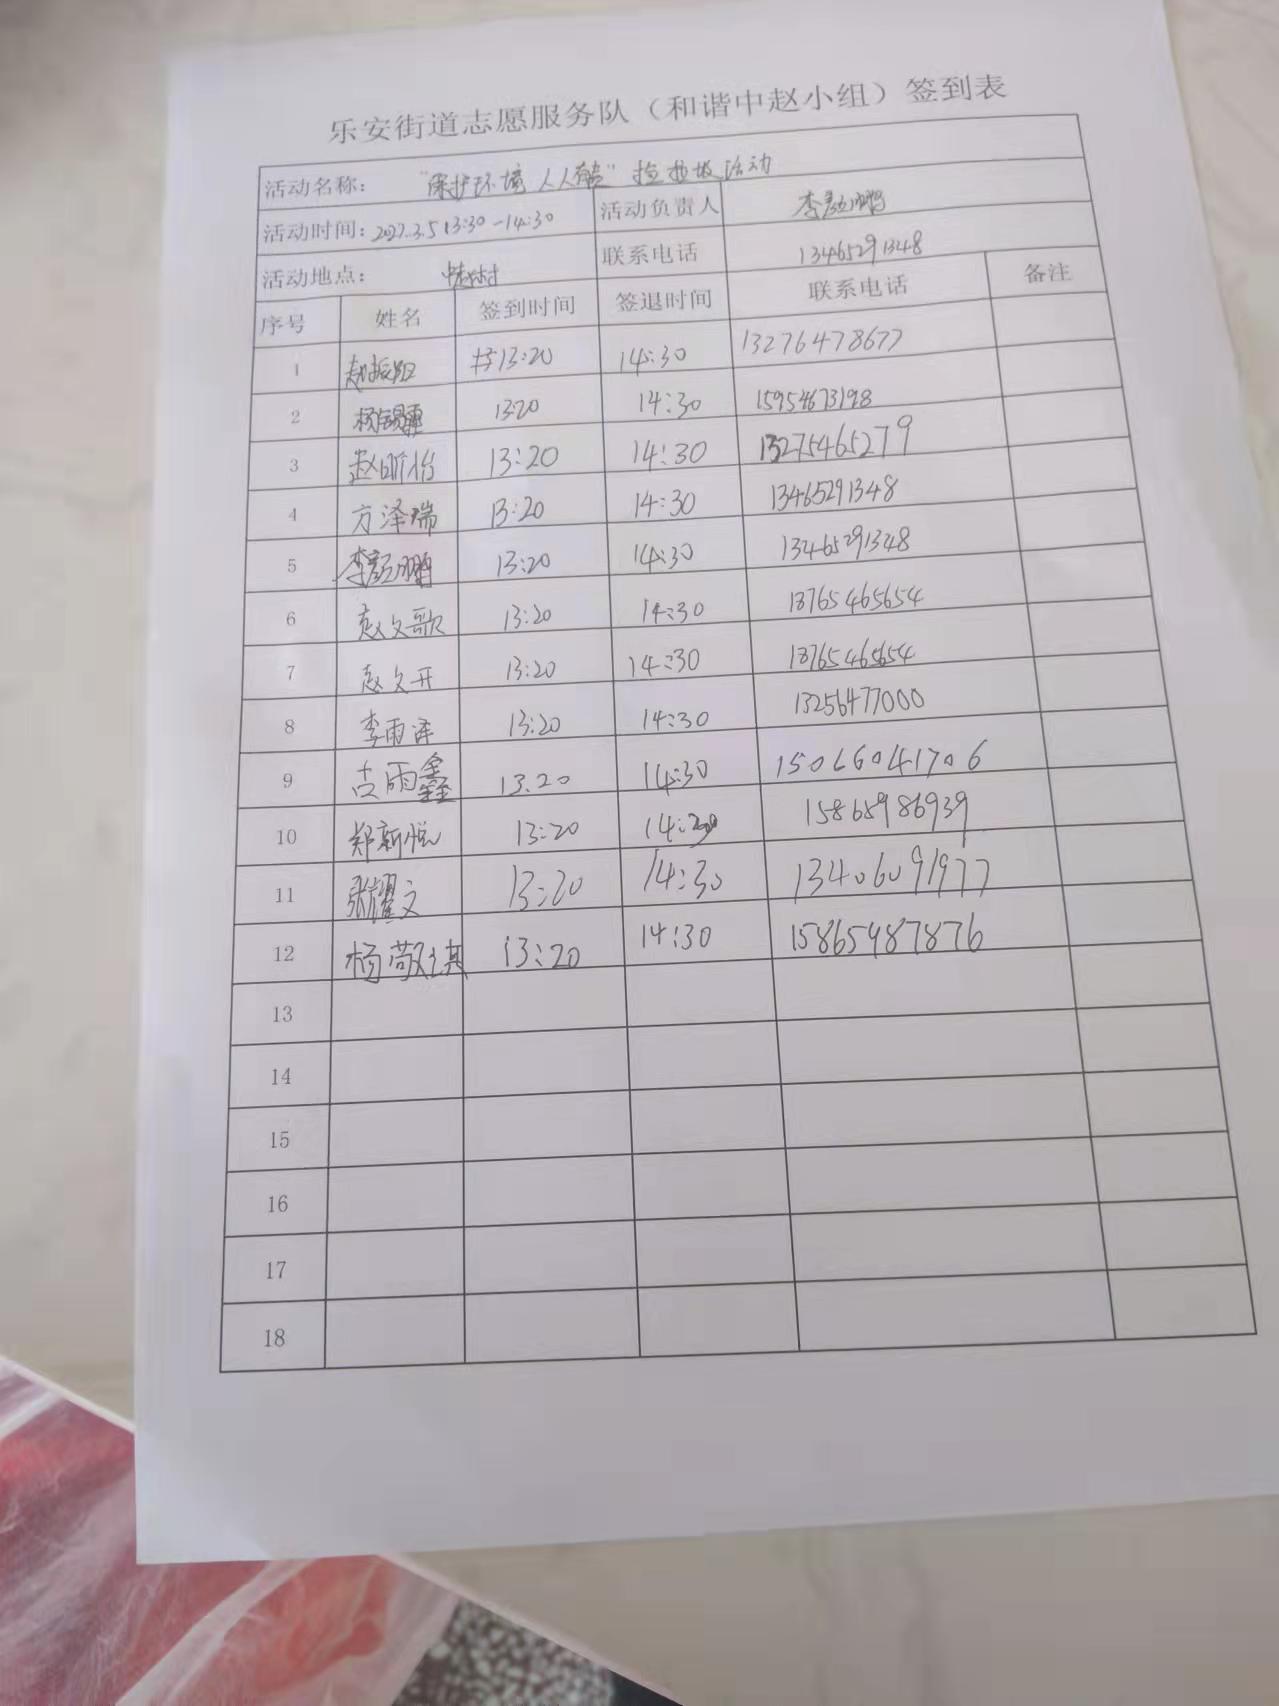 乐安街道志愿服务队（和谐中赵小组）签到表
活动名称： “保护环境 人人有责” 捡垃圾活动
活动时间：2022.3.5 13:30-14:30 活动负责人 李彦鹏
活动地点： 中赵村 联系电话 13465291348
序号 姓名 签到时间 签退时间 联系电话 备注
1 赵振阳 13:20 14:30 13276478677
2 杨锡 13:20 14:30 15954673198
3 赵昕怡 13:20 14:30 13275465279
4 方泽瑞 13:20 14:30 13465291348
5 李彦鹏 13:20 14:30 13465291348
6 赵文歌 13:20 14:30 18765465654
7 赵文开 13:20 14:30 18765465654
8 李雨泽 13:20 14:30 13256477000
9 古雨鑫 13.20 14:30 15066041706
10 郑新悦 13:20 14:30 15865986939
11 张耀文 13:20 14:30 13406091977
12 杨敬淇 13:20 14:30 15865987876
13
14
15
16
17
18